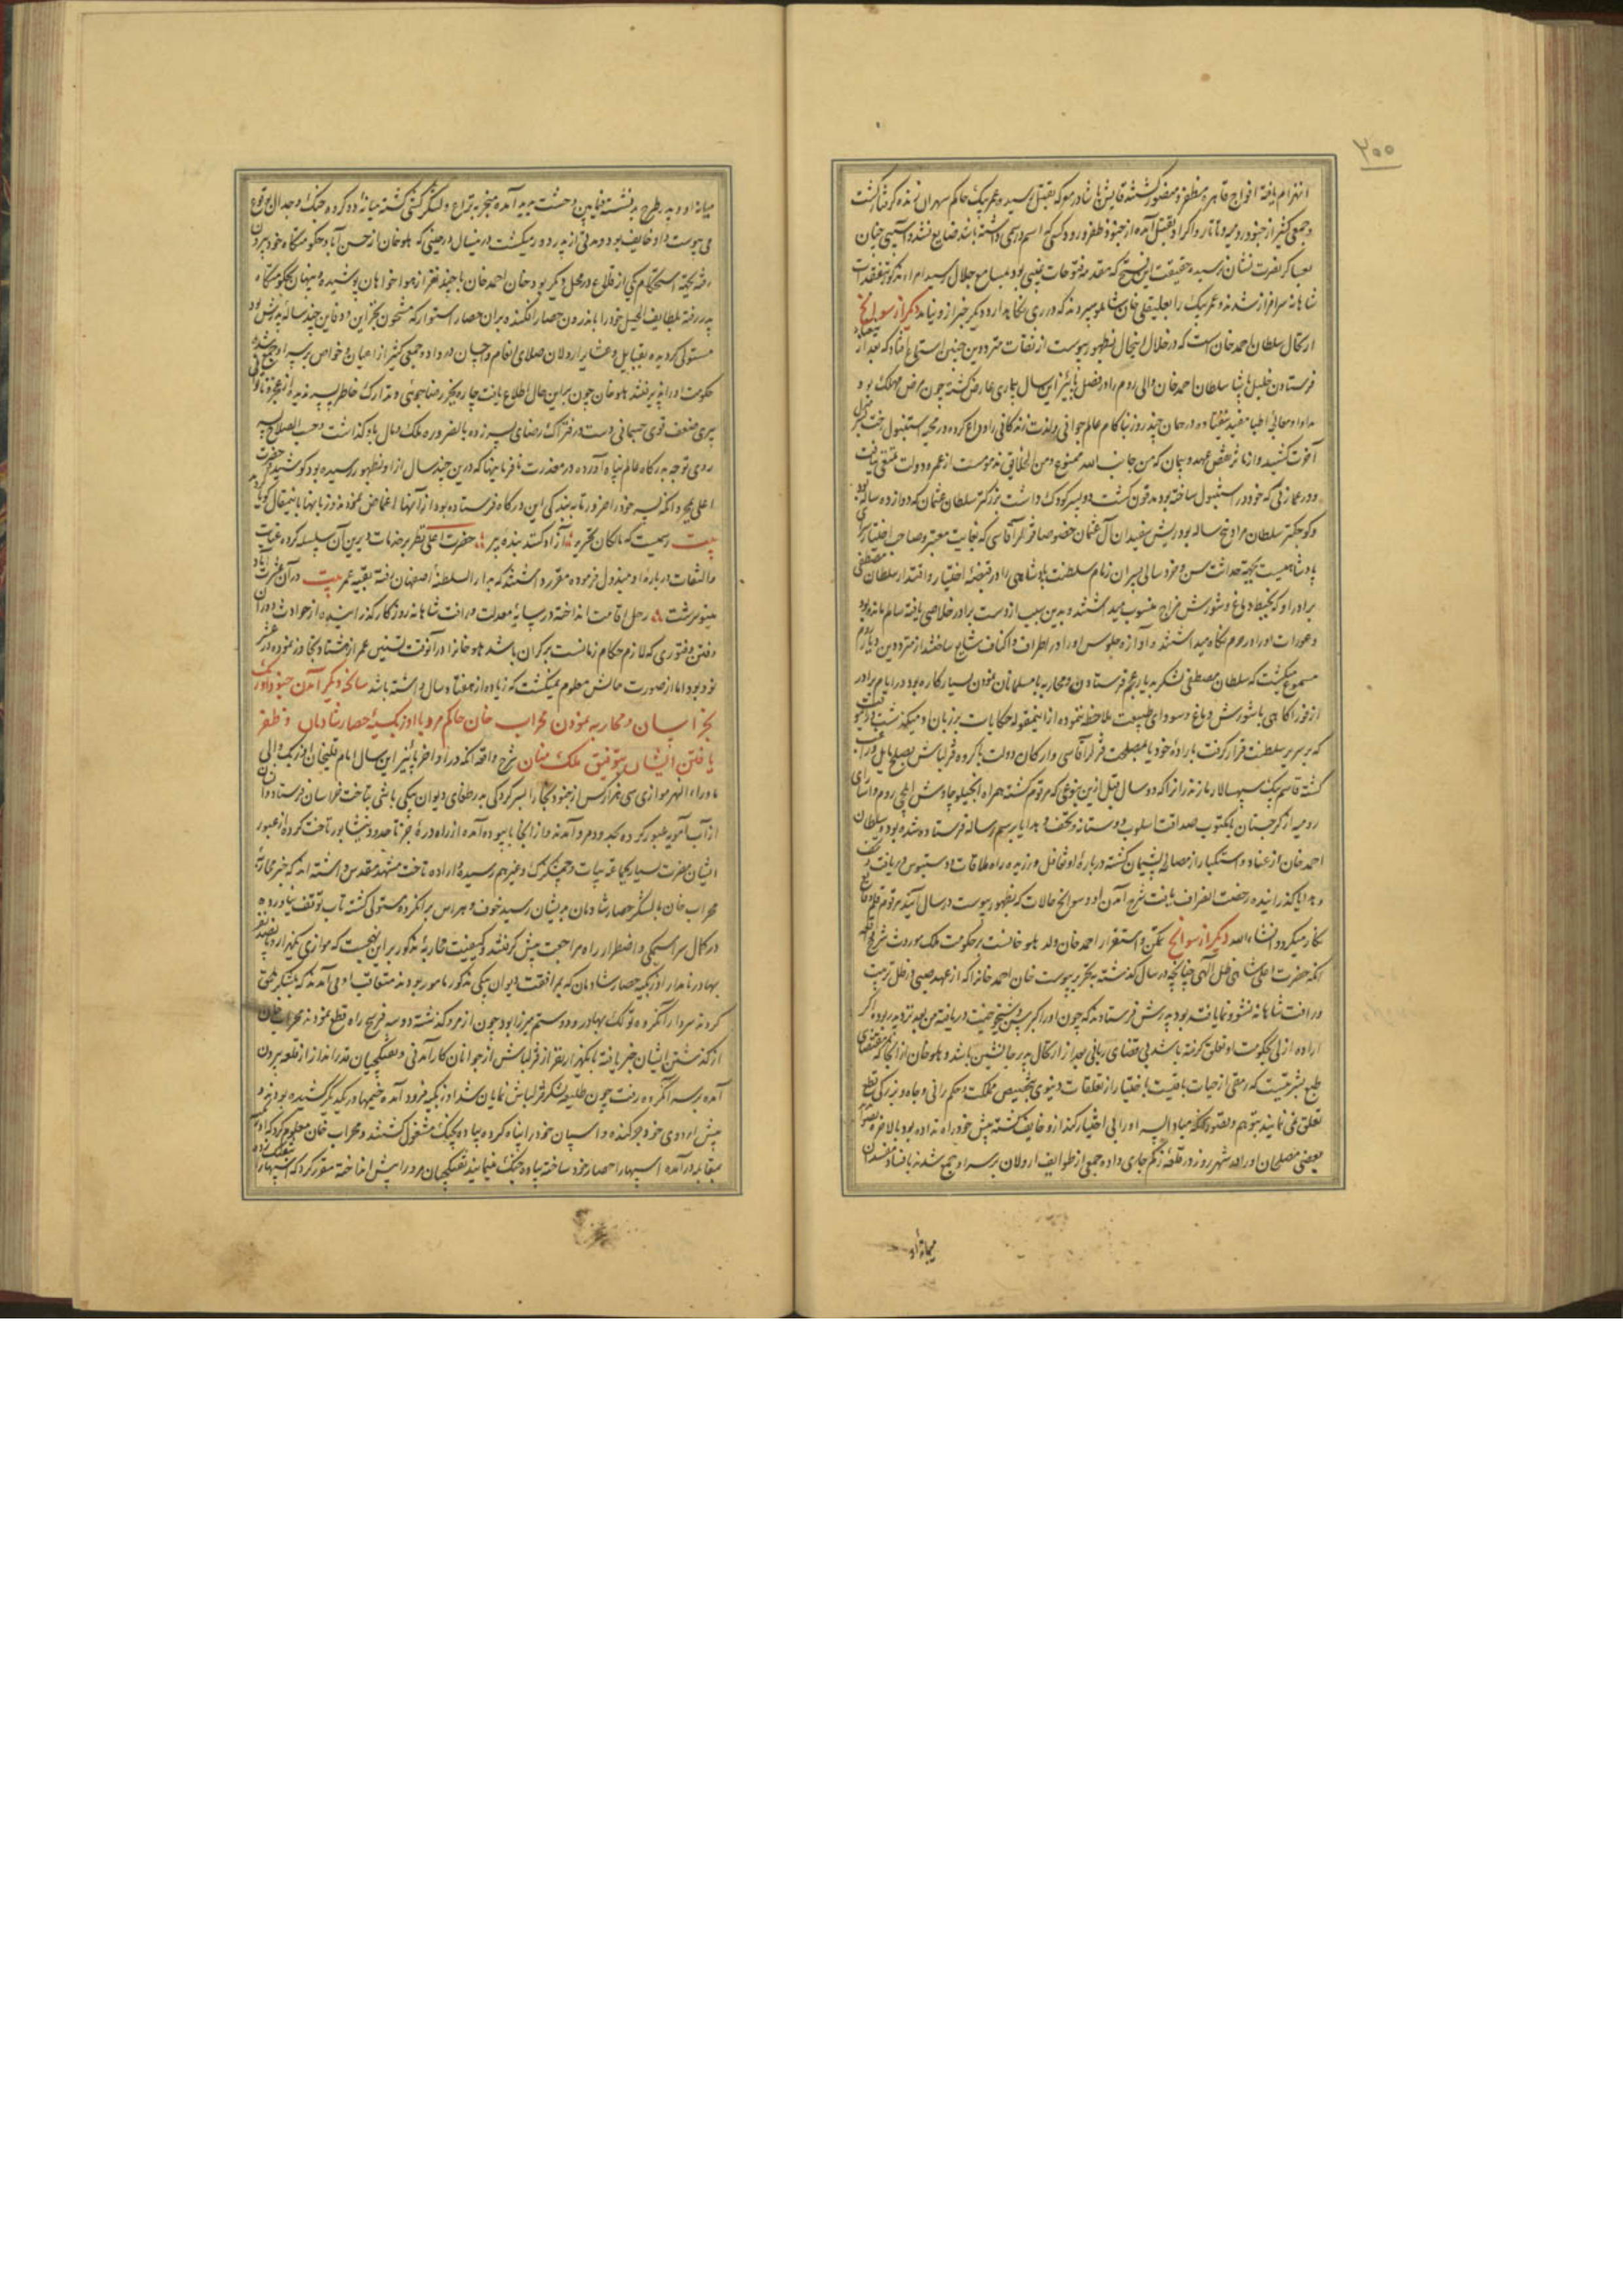 ۲۰۰
انهزام یافته افواج قاهره مظفر و منصور گشتند
و جمعی کثیر از جنود رومیه و تاتار و اکراد بقتل آمده از جنود ظفر ورود کسی که اسم و رسمی داشته باشد ضایع نشد و آسیبی چنان
بعساکر نصرت نشان نرسید و حقیقت این فتح که مقدمه فتوحات غیبی بود بمسامع جلال رسید امراء مذکور بتفقدات
شاهانه سرافراز شدند و عمر بیک را بعلیقلی خان شاملو سپردند که در ری نگاه دارد و دیگر خبر از و نیامد دیگر از سوانح
ارتحال سلطان احمد خان است که در خلال این حال بظهور پیوست از ثقات مترددین چنین استماع افتاد که بعد از
فرستادن خلیل پاشا سلطان احمد خان والی روم را در فصل پائیز این سال بیماری عارض گشته چون مرض مهلک بود
مداوا و معالجه اطبا مفید نیفتاده در همان چند روز بناکام عالم جوانی و لذت زندگانی را وداع کرده در محیه استنبول رخت بمنزل
آخرت کشید
و در عمارتی که خود در استنبول ساخته بود مدفون گشت دو پسر کودک داشت بزرگتر سلطان عثمان که دوازده ساله بود
و کوچکتر سلطان مراد پنج ساله بود ریش سفیدان آل عثمان خصوصا قزلر آقاسی که بغایت معتبر و صاحب اختیار سرای
پادشاهیست بجهة حداثت سن و خرد سالی پسران زمام سلطنت و پادشاهی را در قبضه اختیار و اقتدار سلطان مصطفی
برادر او که بخبط دماغ و شورش مزاج منسوب میداشتند و بدین سبب از دست برادر خلاصی یافته سالم مانده بود
و عورات او را در حرم نگاه میداشتند و آوازه جلوس او را در اطراف و اکناف شایع ساختند از مترددین دیار روم
مسموع میگشت که سلطان مصطفی لشکر بدیار عجم فرستادن و محاربه با مسلمانان نمودن بسیار کاره بود در ایام برادر
از فرزا کاهی با شورش دماغ و سودای طبیعت ملاحظه ننموده از اینمقوله حکایات بر زبان او میگذشت
که بر سریر سلطنت قرار گرفت باراده خود یا بمصلحت قزلر آقاسی و ارکان دولت با گروه قزلباش بصلح مایل و راغب
گشته قاسم بیک سپهسالار مازندران را که دو سال قبل از این بنوعی که مرقوم گشته همراه انجیلو چاوش ایلچی روم و اسرای
رومیه از گرجستان با مکتوب صداقت اسلوب دوستانه و تحف و هدایا برسم رساله فرستاده شده بود و سلطان
احمد خان از عناد و استکبار از مصالحه پشیمان گشته درباره او تغافل ورزیده راه ملاقات و دستبوس در نیافت
و هدایا گذرانیده رخصت انصراف یافت شرح آمدن او و سوانح حالات که بظهور پیوست در سال آینده مرقوم قلم وقایع
نگار میگردد انشاءالله دیگر از سوانح تمکن و استقرار احمد خان ولد هلو خانست بر حکومت ملک موروث شرح واقعه
آنکه حضرت اعلی شاهی ظل الهی چنانچه در سال گذشته بتحریر پیوست خان احمد خان را که از عهد صبی در ظل تربیت
و رافت شاهانه نشو و نما یافته بود پدرش فرستادند که چون او را کبر سن
اراده ازلی بحکومت او تعلق گرفته باشد بی قضای ربانی بعد از ارتحال پدر جانشین باشد و هلو خان از آنجا که مقتضای
طبع بشریتست که رمقی از حیات باقیست باختیار از تعلقات دنیوی بتخصیص مملکت و حکم رانی و جاه و بزرگی قطع
تعلق نمی نمایند
بعضی مصلحان او را در شهر زور در قلعه زلم جای داده جمعی از طوایف اردلان بر سر او جمع شدند
میانه او
میانه او و پدر طرح
می پیوست و او خایف بود و مدتی از پدر دور میگشت در ینسال در حینی که هلو خان از حسن آباد حکومتگاه خود بیرون
رفته بجهة استحکام یکی از قلاع در محل دیگر بود خان احمد خان با چند نفر از هواخواهان پوشیده و پنهان بحکومتگاه
پدر رفته بلطایف الحیل خود را باندرون حصار افکنده بران حصار استوار که مشحون بخزاین و دفاین چند ساله پدرش بود
مستولی گردیده بقبایل و عشایر اردلان صلای انعام و احسان در داده جمعی کثیر از اعیان و خواص بر سر او جمع شده
حکومت او را پذیرفتند هلو خان چون بر این حال اطلاع یافت چاره بجز رضاجوئی و تدارک خاطر پسر ندیده
پیری و ضعف قوی جسمانی دست در فتراک رضای پسر زده بالضروره ملک و مال باو گذاشت و حسب الصلاح پسر
روی توجه بدرگاه عالم پناه آورده در معذرت نافرمانیها که درین چند سال از او بظهور رسیده بود کوشید حضرت
اعلی بجهة آنکه پسر خود را
بیت رسمیست که مالکان تحریر آزاد کنند بنده پیر حضرت اعلی نظر بر خدمات دیرین آن سلسله کرده عنایت
و التفات درباره او مبذول فرموده مقرر داشتند که بدار السلطنه اصفهان رفته بقیه عمر بیت در آن عشرت آباد
مینو سرشت رحل اقامت انداخته در سایه معدلت و رافت شاهانه روزگار گذرانیده از حوادث دوران
و فتن و فتوری که لازم حکام زمانست بر کران باشد هلو خان در آنوقت سنین عمر از هشتاد تجاوز نموده در عشر
نود بود اما از صورت حالش معلوم نمیگشت که زیاده از هفتاد سال داشته باشد سانحه دیگر آمدن جنود اوزبک
بخراسان و محاربه نمودن محراب خان حاکم مرو با اوزبکیه حصار شادمان و ظفر
یافتن ایشان بتوفیق ملک منان شرح واقعه آنکه در اواخر پائیز این سال امام قلیخان اوزبک والی
ماوراء النهر موازی سی هزار کس از جنود بخارا بسرکردگی یدرطغای دیوان بیگی باشی بتاخت خراسان فرستاد و آن
از آب آمویه عبور کرده بحدود مرو آمدند و از آنجا بابیورد آمده از راه دره جز تا حدود نیشابور تاخت کردند از عبور
ایشان مضرت بسیار بجماعة بیات و چمشکزک و غیرهم رسید و اراده تاخت مشهد مقدس داشته اند که خبر محاربه
محراب خان با لشکر حصار شادمان بدیشان رسید خوف و هراس بر آنگروه مستولی گشته تاب توقف نیاوردند
در کمال سراسیمگی و اضطرار راه مراجعت پیش گرفتند و کیفیت محاربه مذکور بر این نهجست که موازی یکهزار و پانصد نفر
بهادر نامدار اوزبکیه حصار شادمان که بمرافقت دیوان بیگی مذکور مامور بودند متعاقب او می آمدند که بلشکر ملحق
گردند سردار آنگروه تونک بهادر و دوستم میرزا بود چون از مرو گذشته دو سه فرسخ راه قطع نمودند محراب خان
از گذشتن ایشان خبر یافته با یکهزار نفر از قزلباش از جوانان کارآمدنی و تفنگچیان قدرانداز از قلعه بیرون
آمده بر سر آنگروه رفت چون طلیعه لشکر قزلباش نمایان شد اوزبکیه فرود آمده خیمها در یکدیگر کشیده بودند و
پیش اردوی خود جر کنده و اسپان خود را پناه کرده پیاده بجنگ مشغول گشتند و محراب خان معلوم کرد که
بمقابله در آمده اسپها را حصار خود ساخته پیاده جنگ مینمایند تفنگچیان مرو را پیش انداخته مقرر کرد که اسپها را